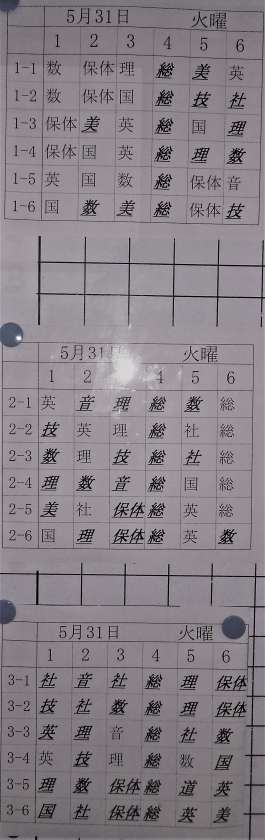 5月31日 火曜
1 2 3 4 5 6
1-1 数 保体 理 総 美 英
1-2 数 保体 国 総 技 社
1-3 保体 美 英 総 国 理
1-4 保体 国 英 総 理 数
1-5 英 国 数 総 保体 音
1-6 国 数 美 総 保体 技
5月31日 火曜
1 2 4 5 6
2-1 英 音 理 総 数 総
2-2 技 英 理 総 社 総
2-3 数 理 技 総 社 総
2-4 理 数 音 総 国 総
2-5 美 社 保体 総 英 総
2-6 国 理 保体 総 英 数
5月31日 火曜
1 2 3 4 5 6
3-1 社 音 社 総 理 保体
3-2 技 社 数 総 理 保体
3-3 英 理 音 総 社 数
3-4 英 技 理 総 数 国
3-5 理 数 保体 総 道 英
3-6 国 社 保体 総 英 美